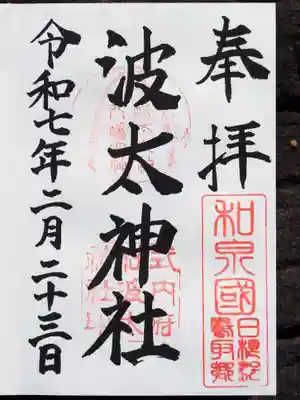 奉拝
和泉國
日根郡
鳥取郷
波太神社
式内府
令和七年二月二十三日